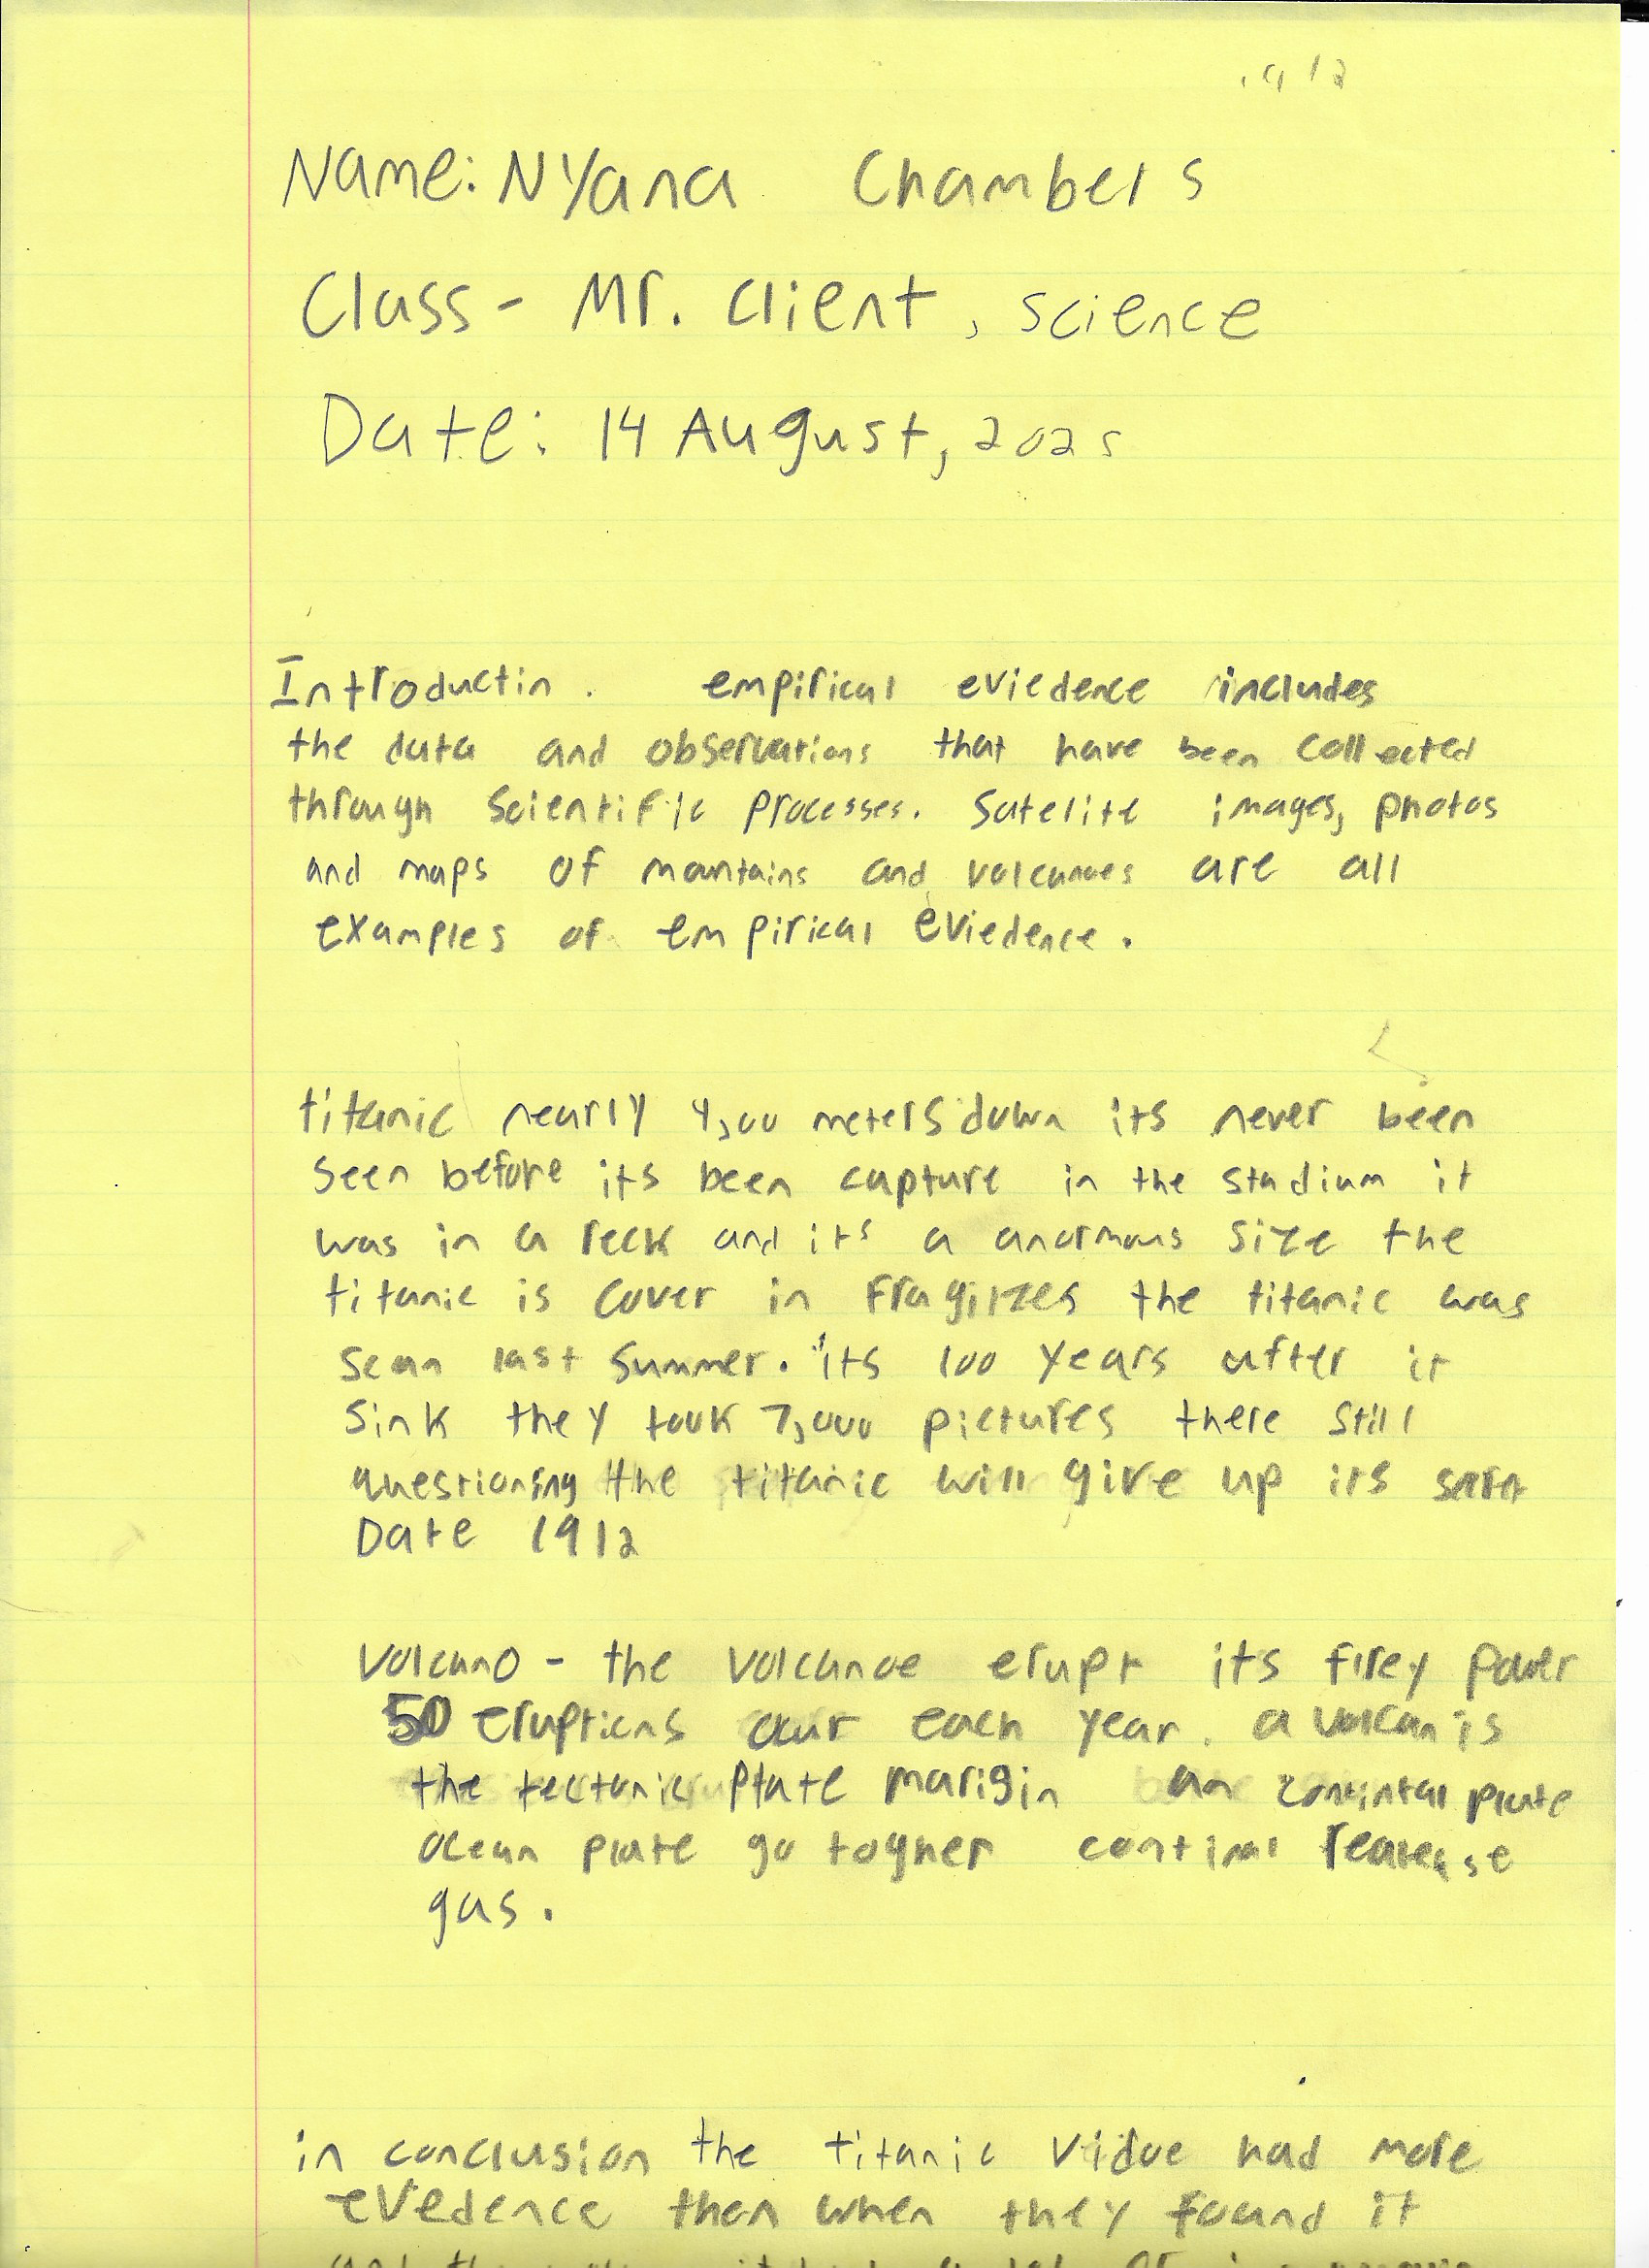 1912
Name: NYana Chambers
Class - Mr. Client, science
Date: 14 August, 2025
Introductin. empirical eviedence includes
the data and observations that have been collected
through scientific processes. Satelite images, photos
and maps of mountains and volcanoes are all
examples of empirical eviedence.
titanic nearly 4,00 meters down its never been
seen before its been capture in the stadium it
was in a reck and its a anormous size the
titanic is cover in the titanic was
scan last summer. its 100 years after it
sink they took 7,000 pictures there still
questioning the titanic will give up its
Date 1912
Volcano - the volcanoe erupt its firey power
50 eruptions each year. a volcan is
the tectonic plate marigin an plate
ocean plate go release
gas.
in conclusion the titanic vidoe had more
evedence then when they found it